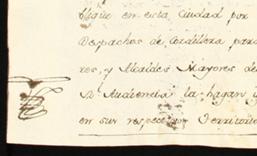 en esta Ciudad por
Despachos de Cordillera para
res, y Alcaldes Mayores de
Rl Audiencia la hagan
en sus respec Territorio